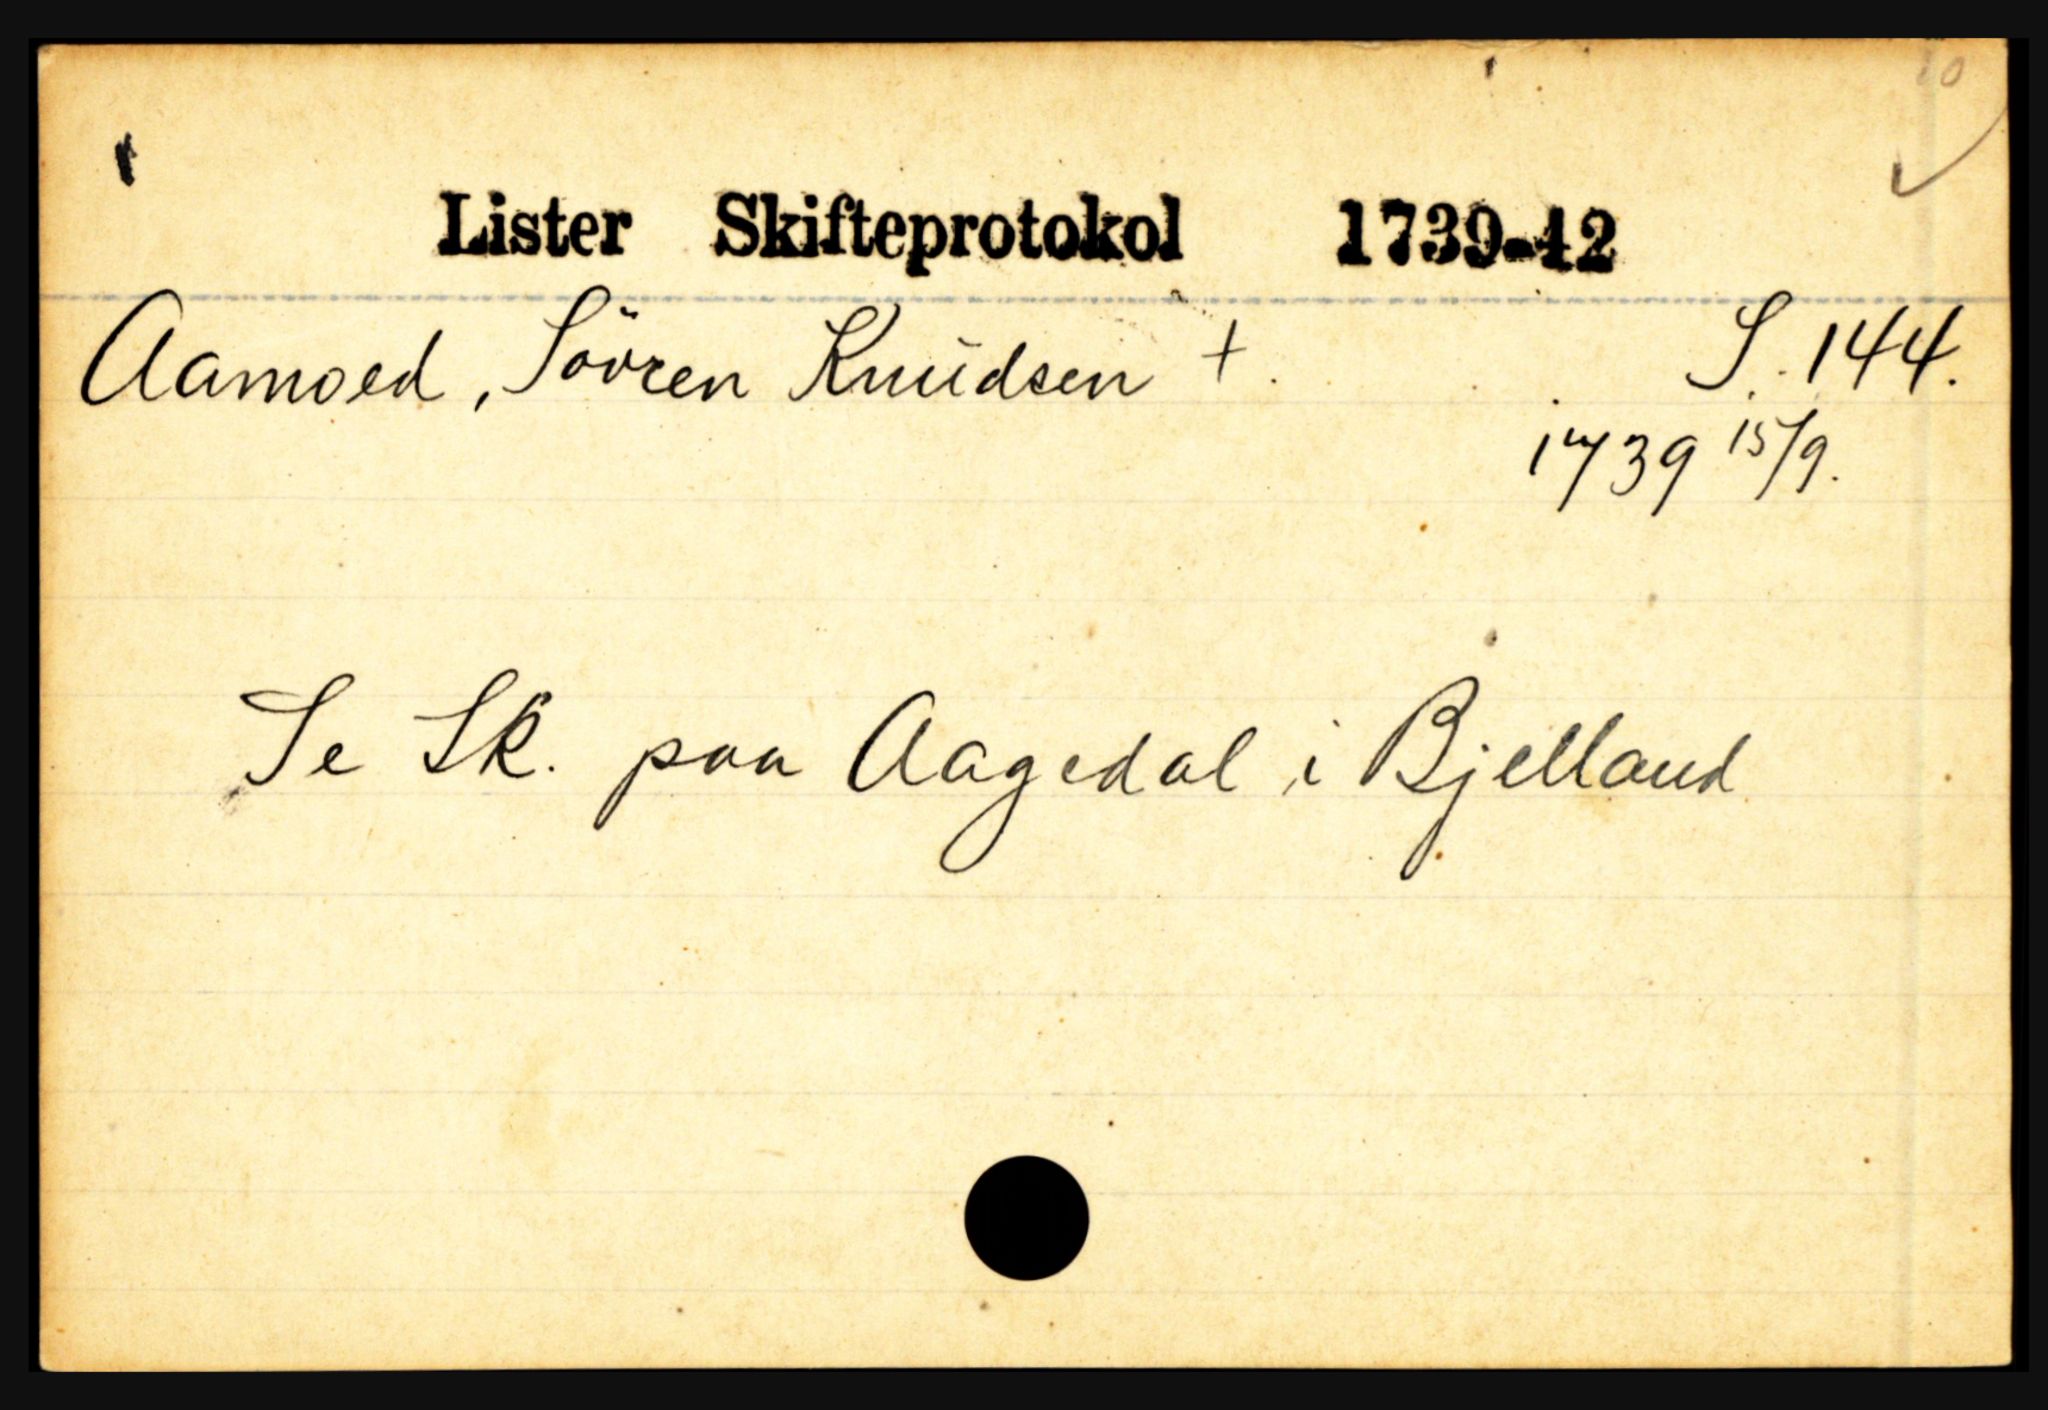 10
Lister Skifteprotokol 1739-42
Aamoed, Sövren Knudsen +. S. 144.
1739 15/9.
Se Sk. paa Aagedal i Bjelland